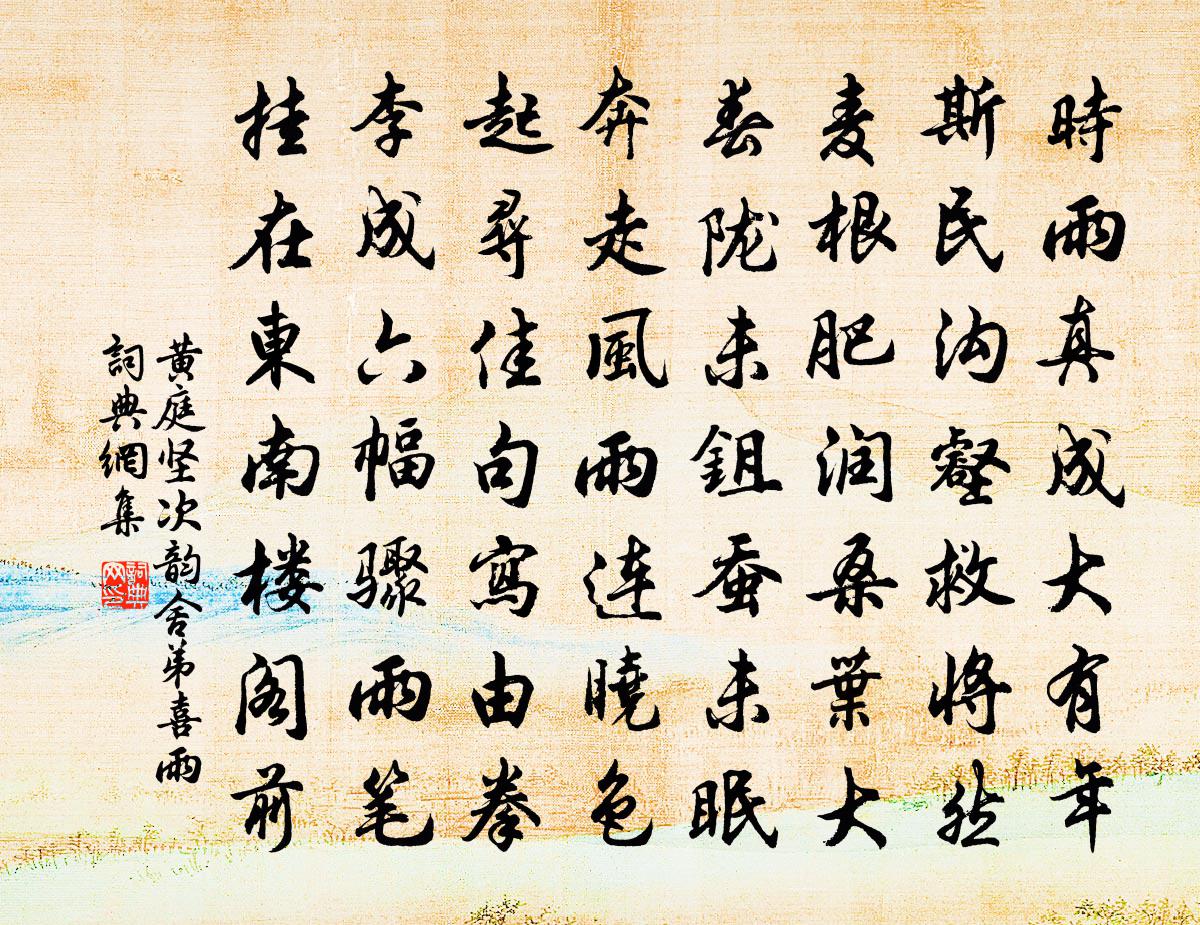 時雨真成大有年
斯民沟壑救将然
麦根肥润桑葉大
春陇未鉏蚕未眠
奔走風雨连曉色
起尋佳句寫由拳
李成六幅骤雨笔
挂在東南楼阁前
黄庭坚次韵舍弟喜雨
詞典網集
詞典网印